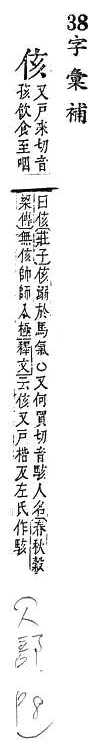 38
字彙補
侅
又戸來切音
孩飲食至咽
曰侅莊子侅溺於馮氣○又何買切音駭人名春秋穀
梁傳無侅帥師入極釋文云侅又戸楷反左氏作駭
人部 98